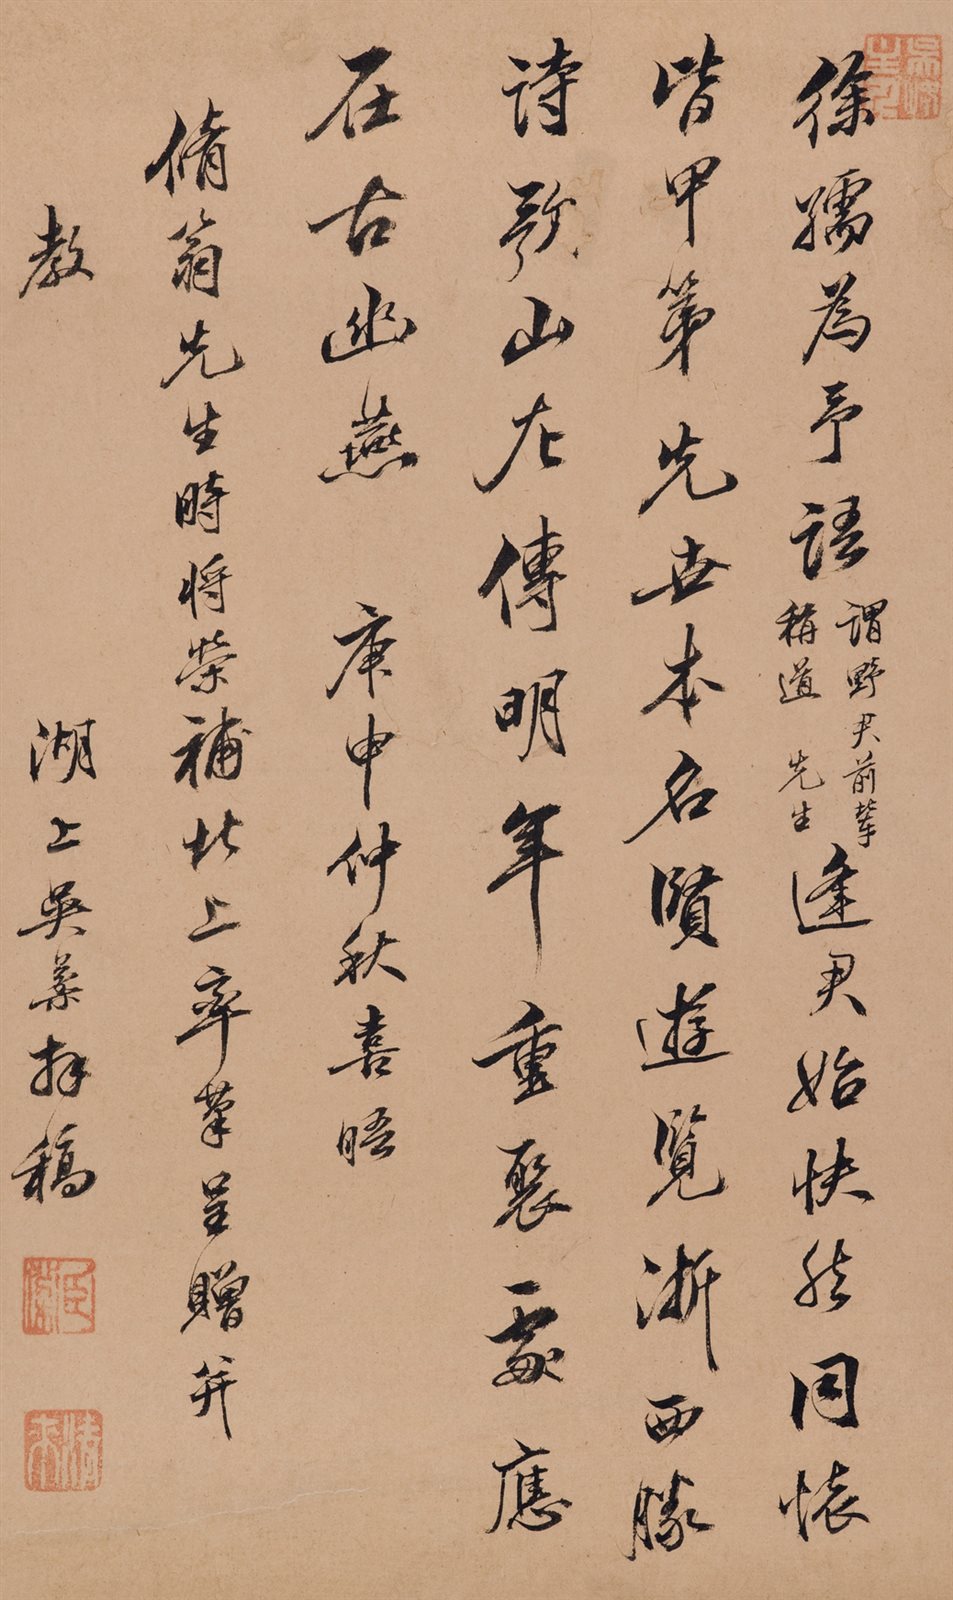 徐孺為予語謂野君前輩稱道先生逢君始快然同懷
皆甲第先世本名賢遊覽浙西勝
詩歌山左傳明年重聚處應
在古幽燕 庚申仲秋喜晤
脩翁先生時將榮補北上率筆呈贈并
教 湖上吳 拜稿